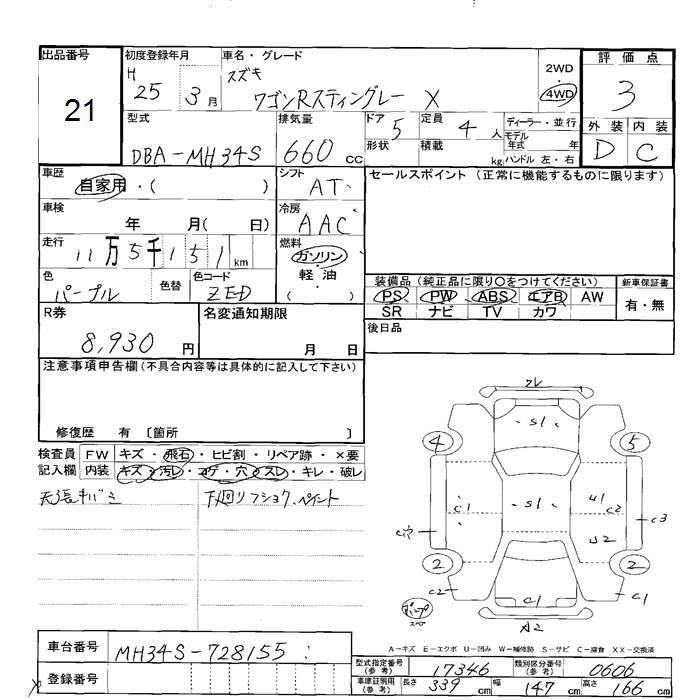 出品番号
21
初度登録年月
H 25 3月
車名・グレード
スズキ
ワゴンRスティングレー X
2WD
・
4WD
評価点
3
外装 内装
D C
型式
DBA-MH34S
排気量
660 cc
ドア 5
形状
定員 4 人
積載 kg
ディーラー・並行
モデル年式 年
ハンドル 左・右
車歴
自家用・( )
シフト
AT
セールスポイント (正常に機能するものに限ります)
車検
年 月( 日)
冷房
AAC
走行
11万5千151km
燃料
ガソリン・
軽油
( )
色
パープル
色替
色コード
ZED
装備品(純正品に限り○をつけてください)
PS PW ABS エアB AW
SR ナビ TV カワ
新車保証書
有・無
R券
8,930 円
名変通知期限
月 日
後日品
注意事項申告欄(不具合内容等は具体的に記入して下さい)
修復歴 有 〔箇所 〕
検査員記入欄
FW キズ・飛石・ヒビ割・リペア跡・×要
内装 キズ・汚レ・コゲ・穴・スレ・キレ・破レ
天張キバミ
下廻リフショク、ペイント
フレ
S1
4 5
S1
C1
U1
C2
C3
U2
2 2
C2
C1
C1
A2
スペ
A-キズ E-エクボ U-凹み W-補修跡 S-サビ C-腐食 XX-交換済
車台番号
MH34S-728155
登録番号
型式指定番号(参考) 17346
類別区分番号(参考) 0606
車庫証明用(参考) 長さ 339 cm 幅 147 cm 高さ 166 cm